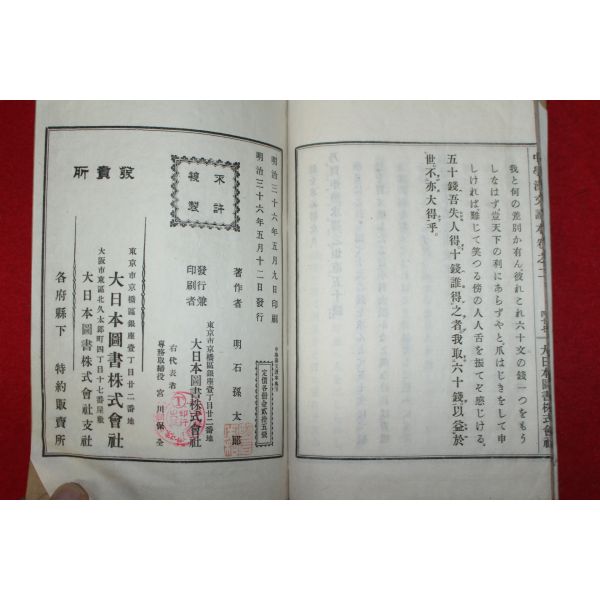 中學漢文讀本卷之二
大日本圖書株式會社
我と何の差別か有ん彼れとこれ六十文の錢一つをもう
しなはず、豈天下の利にあらずやと、爪はじきをして申
しければ、難じて笑つる傍の人人舌を振てぞ感じける。
五十錢、吾失人得。十錢誰得之者。我取六十錢、以益於
世、不亦大得乎。
明治三十六年五月九日印刷
明治三十六年五月十二日發行
定價各册金貳拾五錢
不許
複製
著作者 明石孫太郎
東京市京橋區銀座壹丁目廿二番地
發行兼
印刷者 大日本圖書株式會社
右代表者
專務取締役 宮川保全
發賣所
東京市京橋區銀座壹丁目廿二番地
大日本圖書株式會社
大阪市東區北久太郎町四丁目十七番屋敷
大日本圖書株式會社支社
各府縣下 特約販賣所